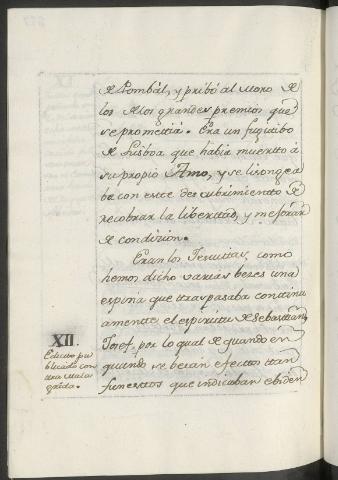 de Pombál, y pribó al Moro de
los Altos grandes premios que
se prometia. Era un fugitibo
de Lisboa que habia muerto à
su propio Amo, y se lisongea
ba con este descubrimiento de
recobrar la libertad, y mejorar
de condizion.
Eran los Jesuitas, como
hemos dicho varias beses una
espina que traspasaba continu
amente el espiritu de Sebastian
Josef, por lo qual de quando en
quando se beian efectos tan
funestos que indicaban ebiden
XII.
Edicto pu
blicado con
tra Mala
grida.